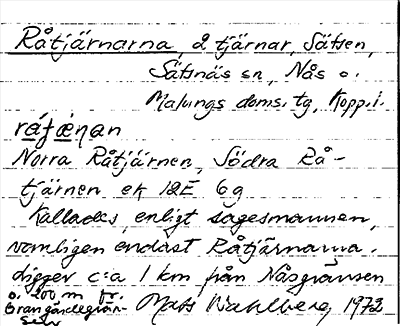 Råtjärnarna, 2 tjärnar, Säfsen,
Säfsnäs sn, Nås o.
Malungs doms. tg, Kopp. l.
Norra Råtjärnen, Södra Rå-
tjärnen ek 12E 6g
Kallades, enligt sagesmannen,
vanligen endast Råtjärnarna.
Ligger c:a 1 km från Nåsgränsen
o. 200 m fr.
Grangärdegrän-
sen
Mats Wahlberg 1973